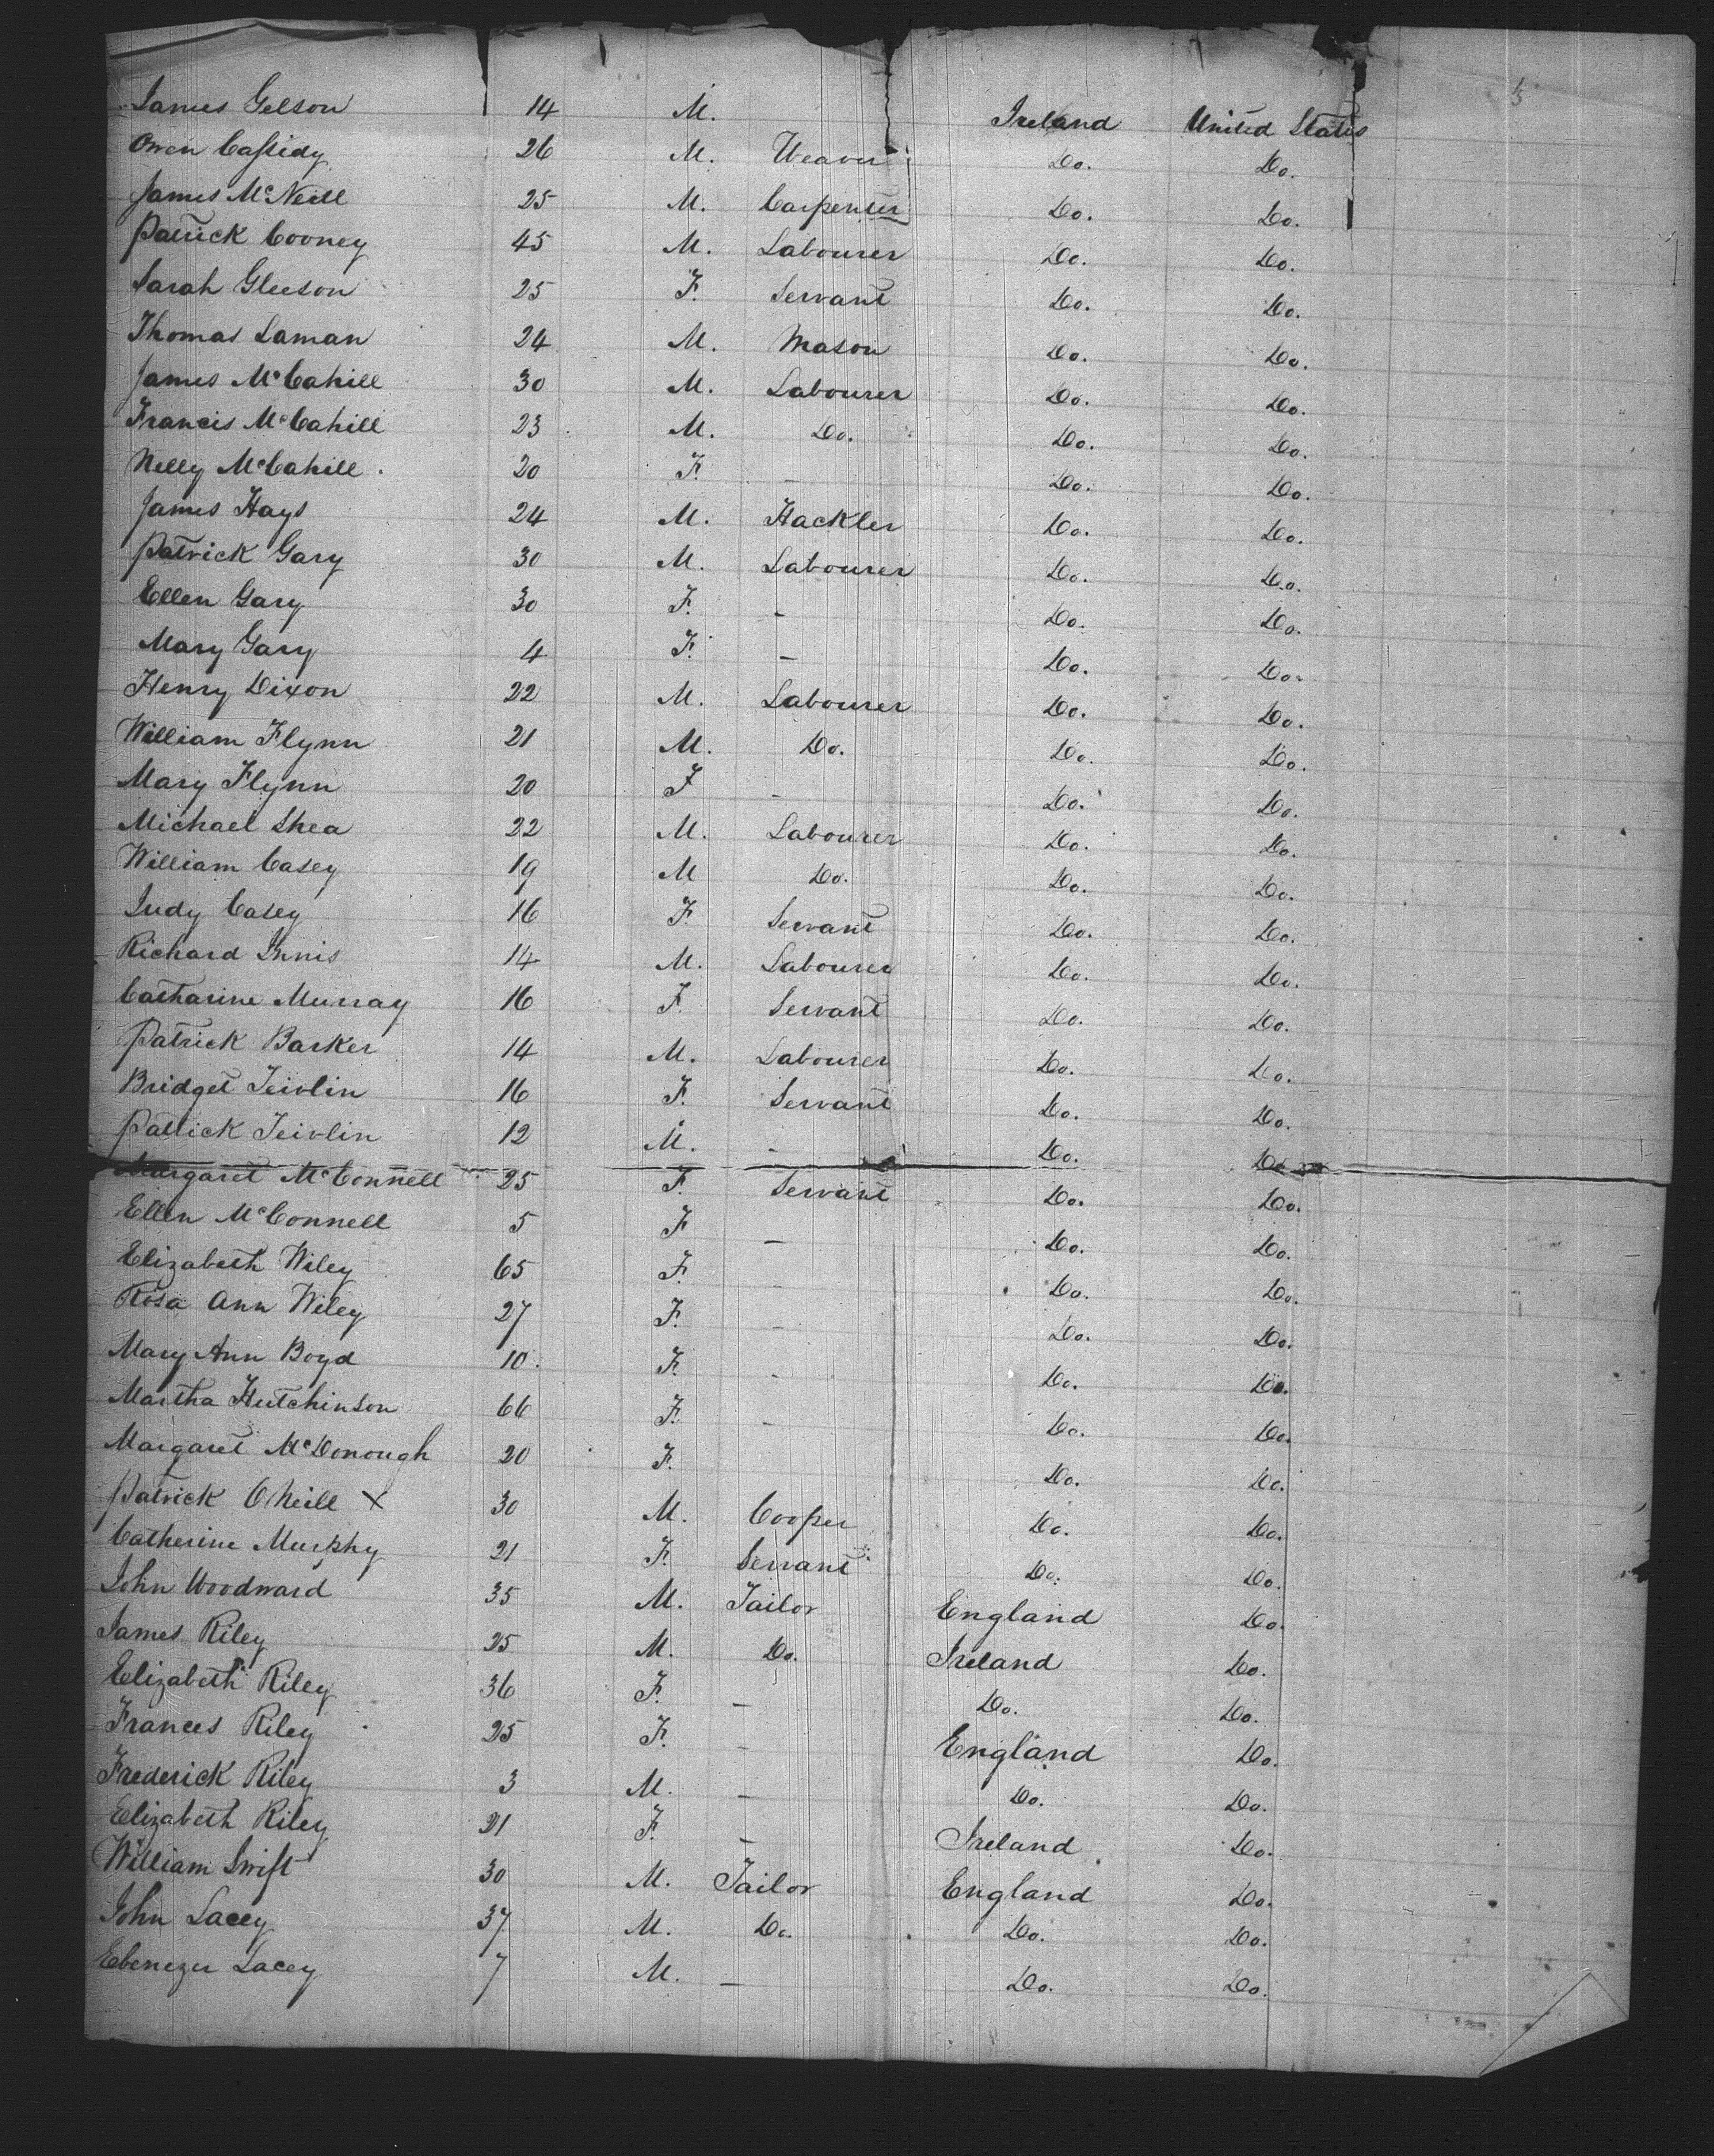 5
James Gelson 14 M. Ireland United States
Owen Cassidy 26 M. Weaver Do. Do.
James McNeill 25 M. Carpenter Do. Do.
Patrick Cooney 45 M. Labourer Do. Do.
Sarah Gleeson 25 F. Servant Do. Do.
Thomas Laman 24 M. Mason Do. Do.
James McCahill 30 M. Labourer Do. Do.
Francis McCahill 23 M. Do. Do. Do.
Nelly McCahill 20 F. - Do. Do.
James Hays 24 M. Hackler Do. Do.
Patrick Gary 30 M. Labourer Do. Do.
Ellen Gary 30 F. - Do. Do.
Mary Gary 4 F. - Do. Do.
Henry Dixon 22 M. Labourer Do. Do.
William Flynn 21 M. Do. Do. Do.
Mary Flynn 20 F - Do. Do.
Michael Shea 22 M. Labourer Do. Do.
William Casey 19 M Do. Do. Do.
Judy Casey 16 F. Servant Do. Do.
Richard Innis 14 M. Labourer Do. Do.
Catharine Murray 16 F. Servant Do. Do.
Patrick Barker 14 M. Labourer Do. Do.
Bridget Teivlin 16 F. Servant Do. Do.
Patrick Teivlin 12 M. - Do. Do.
Margaret McConnell 25 F. Servant Do. Do.
Ellen McConnell 5 F - Do. Do.
Elizabeth Wiley 65 F. - Do. Do.
Rosa Ann Wiley 27 F. - Do. Do.
Mary Ann Boyd 10. F. - Do. Do.
Martha Hutchinson 66 F. - Do. Do.
Margaret McDonough 20 F. Do. Do.
Patrick O'Neill X 30 M. Cooper Do. Do.
Catherine Murphy 21 F. Servant Do. Do.
John Woodward 35 M. Tailor England Do.
James Riley 25 M. Do. Ireland Do.
Elizabeth Riley 36 F. - Do. Do.
Frances Riley 25 F. - England Do.
Frederick Riley 3 M. - Do. Do.
Elizabeth Riley 21 F. - Ireland Do.
William Swift 30 M. Tailor England Do.
John Lacey 37 M. Do. Do. Do.
Ebenezer Lacey 7 M. - Do. Do.